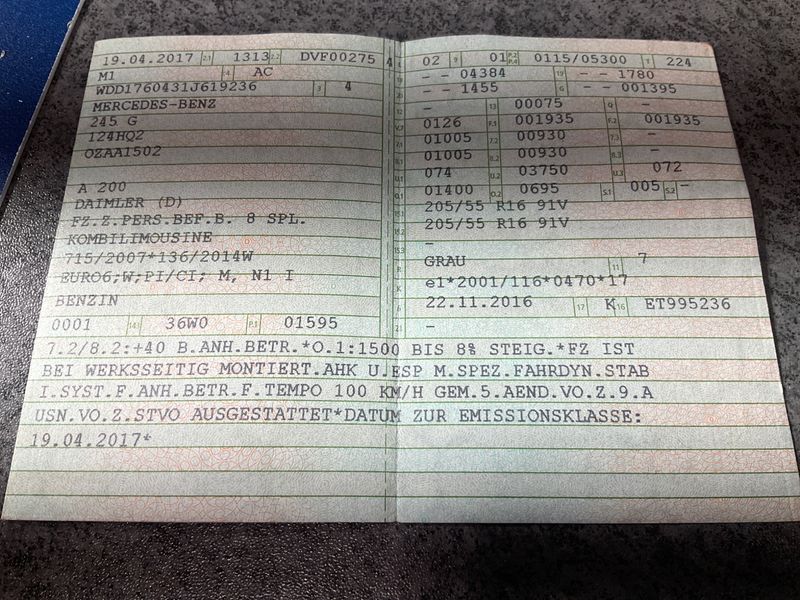 19.04.2017 2.1 1313 2.2 DVF00275 4
M1 4 AC
WDD1760431J619236 3 4
MERCEDES-BENZ
245 G
124HQ2
OZAA1502
A 200
DAIMLER (D)
FZ.Z.PERS.BEF.B. 8 SPL.
KOMBILIMOUSINE
715/2007*136/2014W
EURO6;W;PI/CI; M, N1 I
BENZIN
0001 14.1 36W0 P.1 01595
02 9 01 P.2 P.4 0115/05300 T 224
- - 04384 19 - - 1780
- - 1455 G - - 001395
- 13 00075 Q -
V.7 0126 F.1 001935 F.2 001935
7.1 01005 7.2 00930 7.3 -
8.1 01005 8.2 00930 8.3 -
U.1 074 U.2 03750 U.3 072
O.1 01400 O.2 0695 S.1 005 S.2 -
15.1 205/55 R16 91V
15.2 205/55 R16 91V
15.3 -
R GRAU 11 7
K e1*2001/116*0470*17
6 22.11.2016 17 K 16 ET995236
21 -
7.2/8.2:+40 B.ANH.BETR.*O.1:1500 BIS 8% STEIG.*FZ IST
BEI WERKSSEITIG MONTIERT.AHK U.ESP M.SPEZ.FAHRDYN.STAB
I.SYST.F.ANH.BETR.F.TEMPO 100 KM/H GEM.5.AEND.VO.Z.9.A
USN.VO.Z.STVO AUSGESTATTET*DATUM ZUR EMISSIONSKLASSE:
19.04.2017*